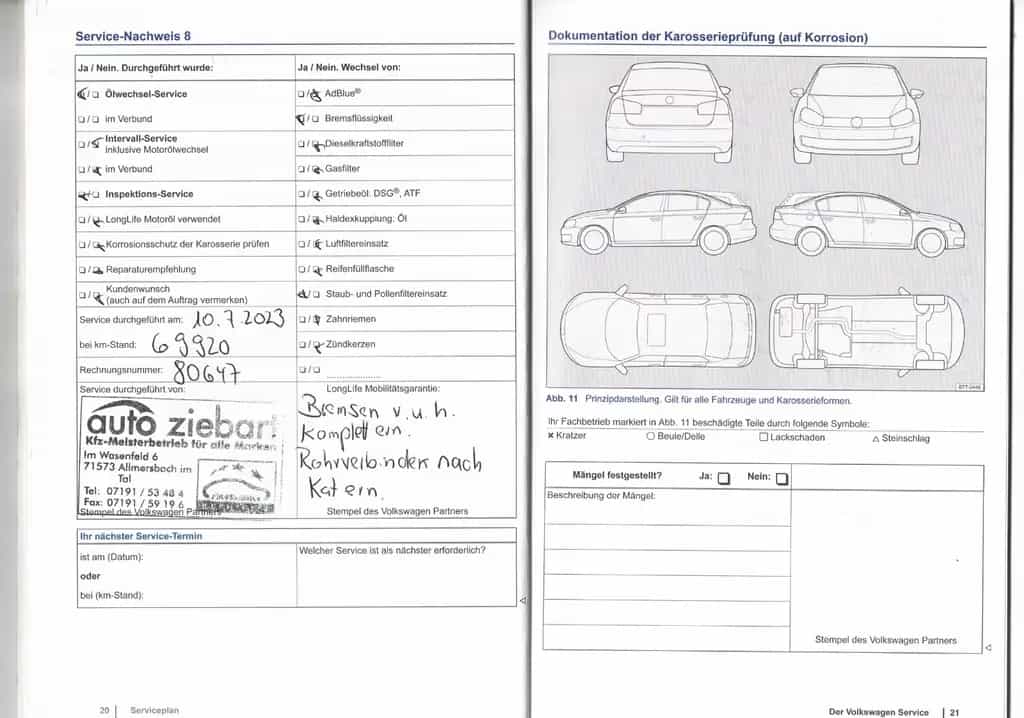 Service-Nachweis 8
Ja / Nein. Durchgeführt wurde:
Ölwechsel-Service
im Verbund
Intervall-Service
inklusive Motorölwechsel
im Verbund
Inspektions-Service
LongLife Motoröl verwendet
Korrosionsschutz der Karosserie prüfen
Reparaturempfehlung
Kundenwunsch
(auch auf dem Auftrag vermerken)
Service durchgeführt am: 10.7.2023
bei km-Stand: 69920
Rechnungsnummer: 80647
Service durchgeführt von:
auto ziebart
Kfz-Meisterbetrieb für alle Marken
Im Wasenfeld 6
71573 Allmersbach im
Tal
Tel: 07191 / 53 48 4
Fax: 07191 / 59 19 6
Stempel des Volkswagen Partners
Ja / Nein. Wechsel von:
AdBlue®
Bremsflüssigkeit
Dieselkraftstofffilter
Gasfilter
Getriebeöl: DSG®, ATF
Haldexkupplung: Öl
Luftfiltereinsatz
Reifenfüllflasche
Staub- und Pollenfiltereinsatz
Zahnriemen
Zündkerzen
LongLife Mobilitätsgarantie:
Bremsen v.u.h.
komplett ern.
Rohrverbinder nach
Kat ern.
Stempel des Volkswagen Partners
Ihr nächster Service-Termin
ist am (Datum):
oder
bei (km-Stand):
Welcher Service ist als nächster erforderlich?
20 | Serviceplan
Dokumentation der Karosserieprüfung (auf Korrosion)
Abb. 11 Prinzipdarstellung. Gilt für alle Fahrzeuge und Karosserieformen.
Ihr Fachbetrieb markiert in Abb. 11 beschädigte Teile durch folgende Symbole:
× Kratzer ○ Beule/Delle □ Lackschaden △ Steinschlag
Mängel festgestellt? Ja: □ Nein: □
Beschreibung der Mängel:
Stempel des Volkswagen Partners
Der Volkswagen Service | 21